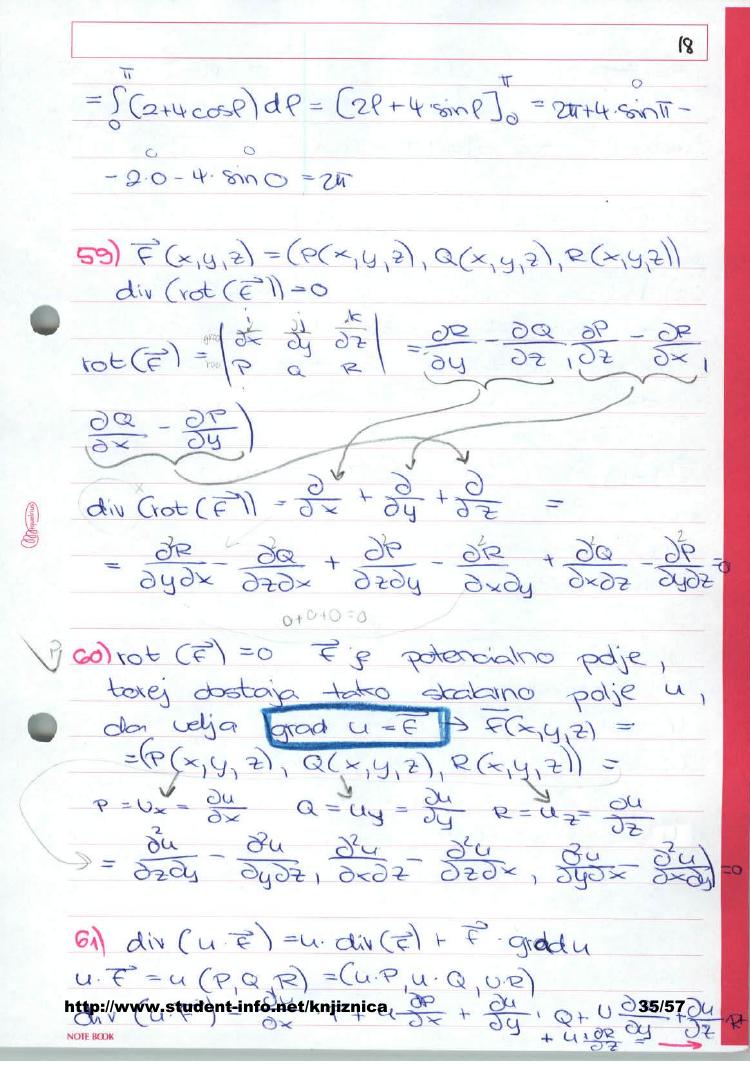 18
= ∫₀^π (2+4cosφ)dφ = [2φ+4·sinφ]₀^π = 2π+4·sinπ -
- 2·0 - 4·sin0 = 2π
59) F⃗(x,y,z) = (P(x,y,z), Q(x,y,z), R(x,y,z))
div(rot(F⃗)) = 0
rot(F⃗) = | i j k ; ∂x ∂y ∂z ; P Q R | = ∂R/∂y - ∂Q/∂z, ∂P/∂z - ∂R/∂x,
∂Q/∂x - ∂P/∂y)
div(rot(F⃗)) = ∂/∂x + ∂/∂y + ∂/∂z =
= ∂²R/∂y∂x - ∂²Q/∂z∂x + ∂²P/∂z∂y - ∂²R/∂x∂y + ∂²Q/∂x∂z - ∂²P/∂y∂z = 0
0+0+0=0
60) rot (F⃗) = 0 F⃗ je potencialno polje,
torej obstaja tako skalarno polje u,
da velja grad u = F⃗ → F⃗(x,y,z) =
= (P(x,y,z), Q(x,y,z), R(x,y,z)) =
P = ux = ∂u/∂x Q = uy = ∂u/∂y R = uz = ∂u/∂z
= ∂²u/∂z∂y - ∂²u/∂y∂z, ∂²u/∂x∂z - ∂²u/∂z∂x, ∂²u/∂y∂x - ∂²u/∂x∂y) = 0
61) div(u·F⃗) = u·div(F⃗) + F⃗·grad u
u·F⃗ = u(P,Q,R) = (u·P, u·Q, u·R)
div (u·F⃗) = ∂u/∂x · P + u ∂P/∂x + ∂u/∂y · Q + u ∂Q/∂y + ∂u/∂z · R +
+ u·∂R/∂z =
http://www.student-info.net/knjiznica 35/57
NOTE BOOK